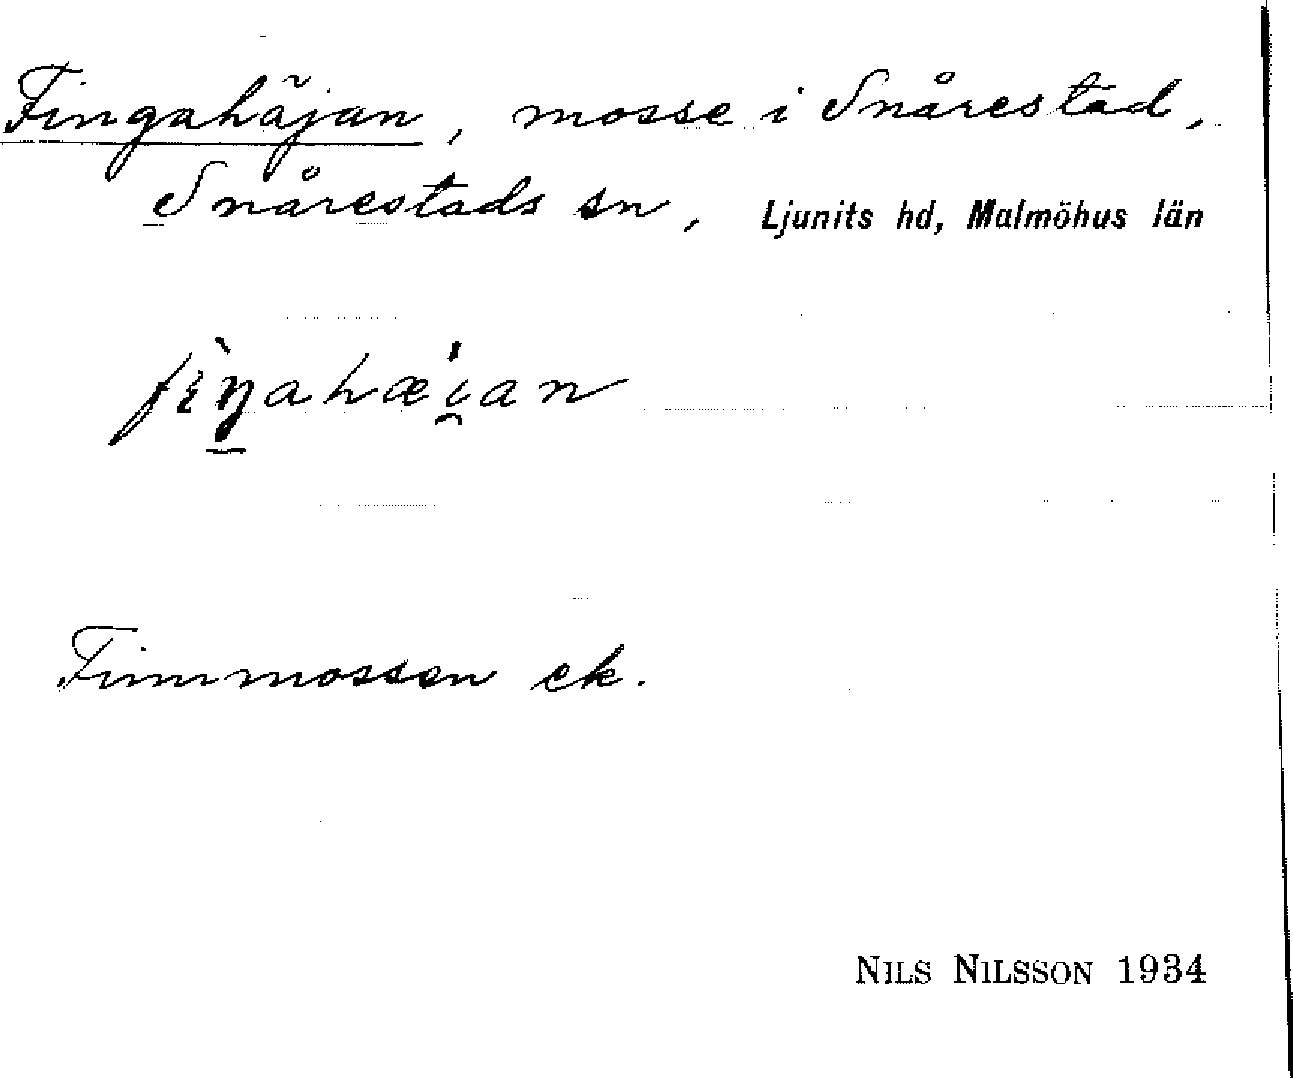 Fingahäjan, mosse i Snårestad,
Snårestads sn, Ljunits hd, Malmöhus län
Finnmossen ek.
NILS NILSSON 1934